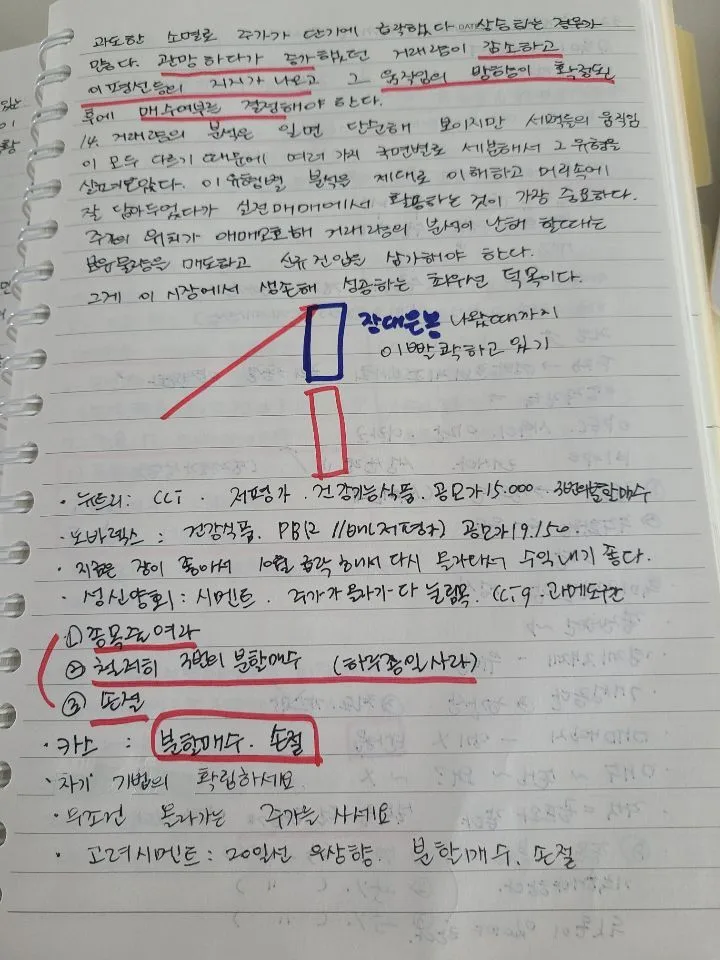 과도한 소멸로 주가가 단기에 급락했다 상승하는 경우가
많다. 관망하다가 증가했던 거래량이 감소하고
이평선등의 지지가 나오고 그 움직임의 방향성이 확정된
후에 매수여부를 결정해야 한다.
14. 거래량의 분석은 일면 단순해 보이지만 세력들의 움직임
이 모두 다르기 때문에 여러 가지 국면별로 세분해서 그 유형을
살펴보았다. 이 유형별 분석을 제대로 이해하고 머리속에
잘 담아두었다가 실전매매에서 활용하는 것이 가장 중요하다.
주가의 위치가 애매모호해 거래량의 분석이 난해 할때는
보유물량을 매도하고 신규진입을 삼가해야 한다.
그게 이 시장에서 생존해 성공하는 최우선 덕목이다.
장대음봉 나왔때까지
이빨 꽉하고 있기
· 뉴트리: CCI . 저평가 . 건강기능식품. 공모가 15.000 . 3번의분할매수
· 노바렉스 : 건강식품. PBR 11배(저평가) 공모가 19.150
· 지금은 장이 좋아서 10월 급락 해서 다시 투자해서 수익내기 좋다.
· 성신양회 : 시멘트 . 주가가 올라가다 눌림목. CCI 9 . 과메도구간
① 종목줄여라
② 철저히 3번의 분할매수 (하루종일 사라)
③ 손절
· 카스 : 분할매수. 손절
· 자기 기법의 확립하세요
· 무조건 올라가는 주가를 사세요.
· 고려시멘트 : 20일선 우상향. 분할매수. 손절